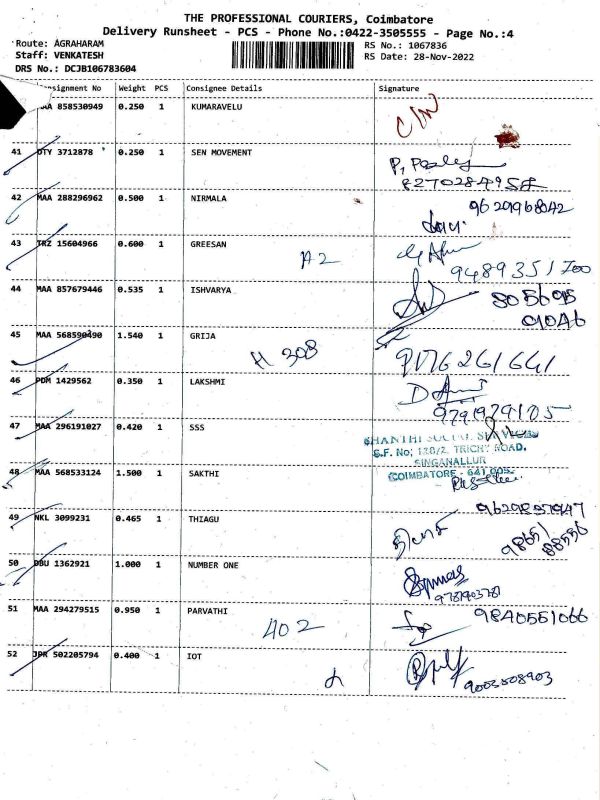 THE PROFESSIONAL COURIERS, Coimbatore
Delivery Runsheet - PCS - Phone No.:0422-3505555 - Page No.:4
Route: AGRAHARAM
RS No.: 1067836
Staff: VENKATESH
RS Date: 28-Nov-2022
DRS No.: DCJB106783604
Consignment No Weight PCS Consignee Details Signature
858530949 0.250 1 KUMARAVELU
41 DTY 3712878 0.250 1 SEN MOVEMENT
8270284958
42 MAA 288296962 0.500 1 NIRMALA 9629968042
43 TRZ 15604966 0.600 1 GREESAN
A2
9489351700
44 MAA 857679446 0.535 1 ISHVARYA 805695
01046
45 MAA 568590490 1.540 1 GRIJA
H 308
9176261641
46 PDM 1429562 0.350 1 LAKSHMI
9791929105
47 MAA 296191027 0.420 1 SSS
SHANTHI SOCIAL SERVICES
S.F. No; 128/2, TRICHY ROAD,
SINGANALLUR
COIMBATORE - 641 005.
48 MAA 568533124 1.500 1 SAKTHI
9629857947
49 NKL 3099231 0.465 1 THIAGU
98651
88556
50 DBU 1362921 1.000 1 NUMBER ONE
9787903781
51 MAA 294279515 0.950 1 PARVATHI 9840551066
402
52 JPR 502205794 0.400 1 IOT
9003508903